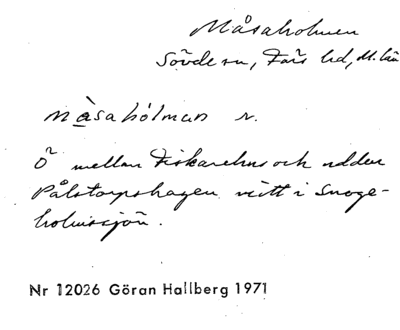 Måsaholmen
Sövde sn, Färs hd, M. län
måsahólman r.
Ö mellan Fiskarehus och udden
Pålstorpshagen mitt i Snoge-
holmssjön.
Nr 12026 Göran Hallberg 1971